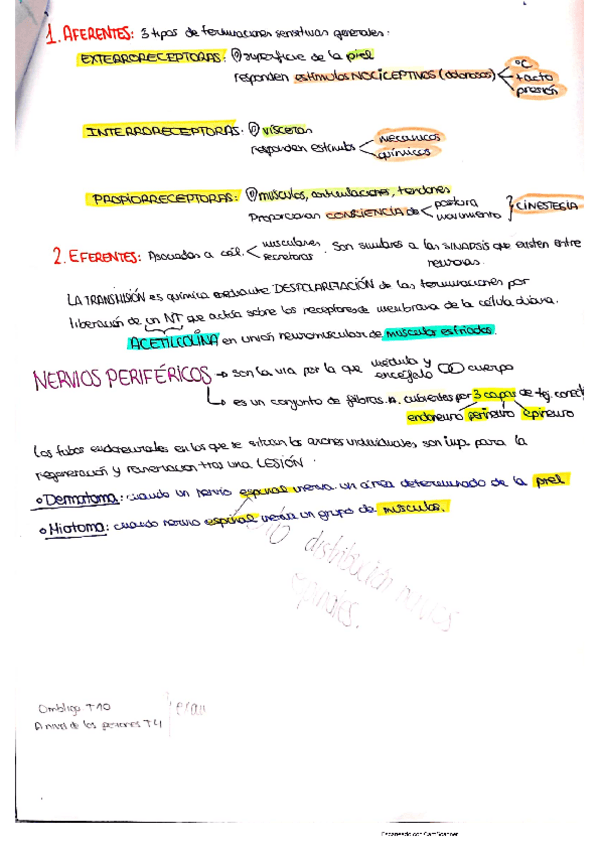 1. AFERENTES: 3 tipos de terminaciones sensitivas generales.
EXTERRORECEPTORAS: superficie de la piel
responden estímulos NOCICEPTIVOS (dolorosos) ºC
tacto
presión
INTERRORECEPTORAS. vísceras
responden estímulos mecánicos
químicos
PROPIORRECEPTORAS: músculos, articulaciones, tendones
Proporcionan CONSCIENCIA de postura
movimiento
CINESTESIA
2. EFERENTES: Asociadas a cél. musculares
secretoras. Son similares a las SINAPSIS que existen entre
neuronas.
LA TRANSMISIÓN es química mediante DESPOLARIZACIÓN de las terminaciones por
liberación de un NT que actúa sobre los receptores de membrana de la célula diana.
ACETILCOLINA en unión neuromuscular de músculos estriados.
NERVIOS PERIFÉRICOS → son la vía por la que médula y
encéfalo cuerpo
es un conjunto de fibras n. cubiertas por 3 capas de tej. conect
endoneuro perineuro epineuro
Los tubos endoneurales en los que se sitúan los axones individuales, son imp. para la
regeneración y reinervación tras una LESIÓN.
Dermatoma: cuando un nervio espinal inerva un área determinada de la piel
Miotoma: cuando nervio espinal inerva un grupo de músculos.
distribución nervios
espinales.
Ombligo T10
A nivel de los pezones T4
Escaneado con CamScanner